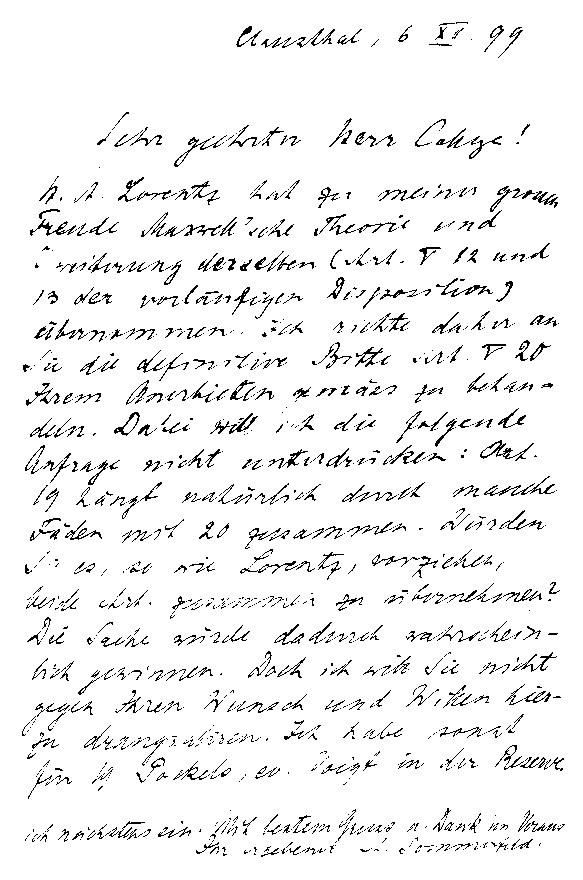 Clausthal, 6 XII. 99
Sehr geehrter Herr College!
H. A. Lorentz hat zu meiner grossen
Freude Maxwell'sche Theorie und
Erweiterung derselben (Art. V 12 und
13 der vorläufigen Disposition)
übernommen. Ich richte daher an
Sie die definitive Bitte Art. V 20
Ihrem Anerbieten gemäss zu behan-
deln. Dabei will ich die folgende
Anfrage nicht unterdrücken: Art.
19 hängt natürlich durch manche
Fäden mit 20 zusammen. Würden
Sie es, so wie Lorentz, vorziehen,
beide Art. zusammen zu übernehmen?
Die Sache würde dadurch wahrschein-
lich gewinnen. Doch ich will Sie nicht
gegen Ihren Wunsch und Willen hier-
zu drangsaliren. Ich habe sonst
für 19 Pockels, ev. Voigt in der Reserve.
ich nächstens ein. Mit bestem Gruss u. Dank im Voraus
Ihr ergebener A. Sommerfeld.